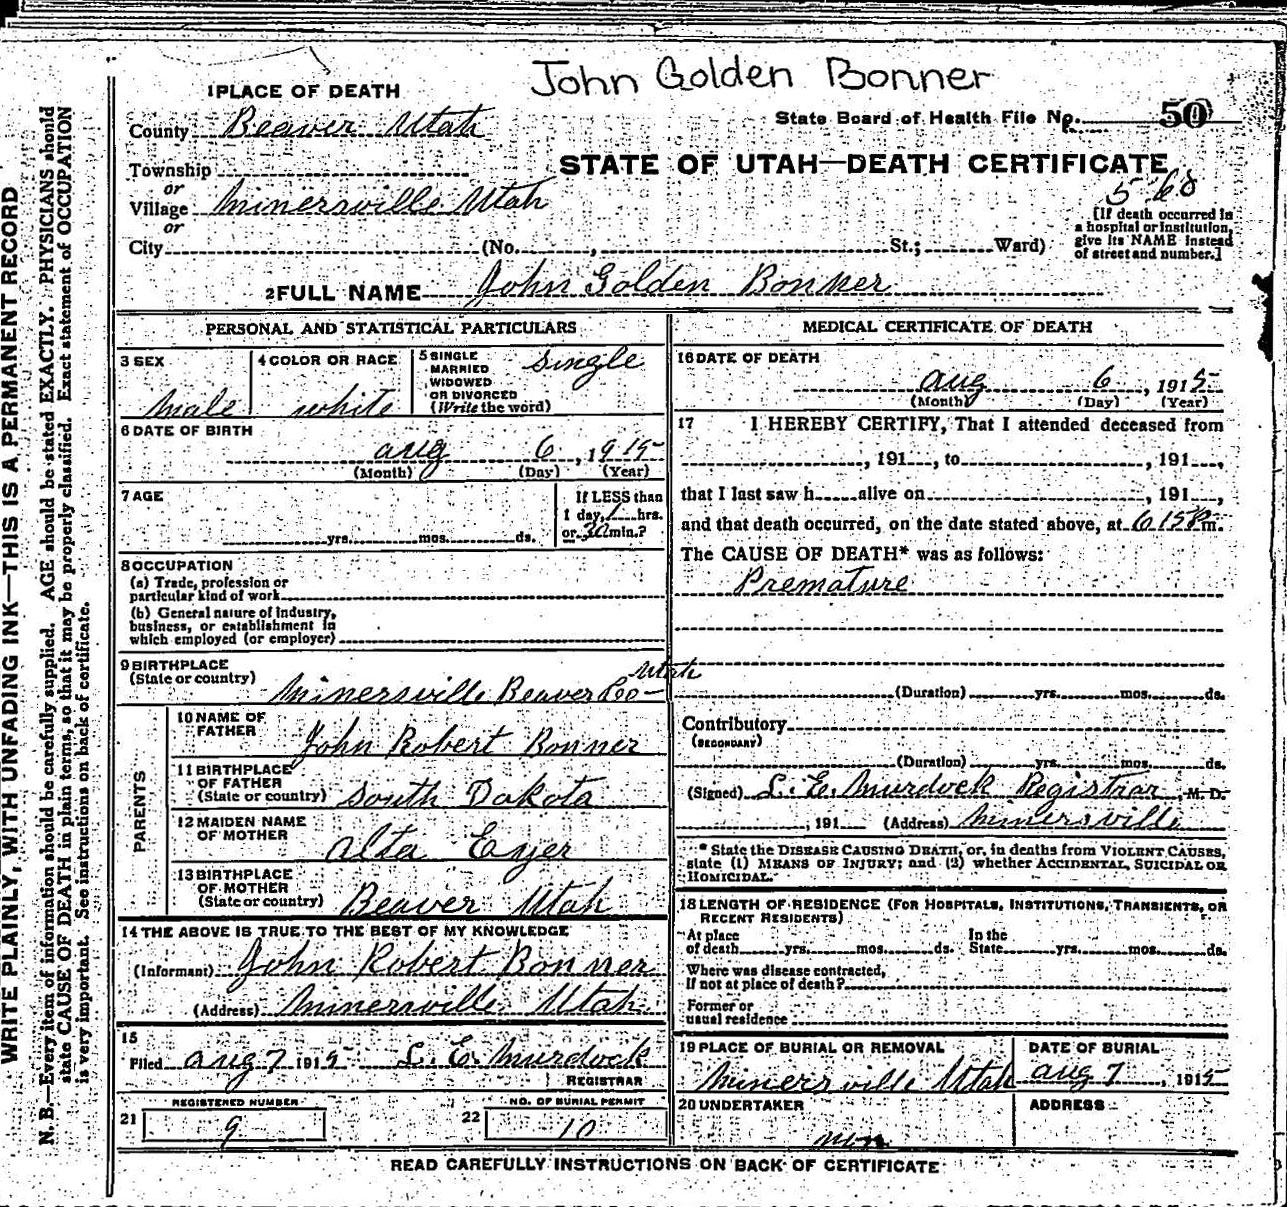 John Golden Bonner
1 PLACE OF DEATH
County Beaver Utah
State Board of Health File No. 50
STATE OF UTAH—DEATH CERTIFICATE
560
Township
or
Village Minersville Utah
or
City (No. , St.; Ward)
[If death occurred in
a hospital or institution,
give its NAME instead
of street and number.]
2 FULL NAME John Golden Bonner
PERSONAL AND STATISTICAL PARTICULARS
3 SEX
Male
4 COLOR OR RACE
white
5 SINGLE
MARRIED
WIDOWED
OR DIVORCED
(Write the word)
Single
6 DATE OF BIRTH
aug 6, 1915
(Month) (Day) (Year)
7 AGE
yrs. mos. ds.
If LESS than
1 day, 1 hrs.
or 30 min.?
8 OCCUPATION
(a) Trade, profession or
particular kind of work
(b) General nature of industry,
business, or establishment in
which employed (or employer)
9 BIRTHPLACE
(State or country)
Minersville Beaver Co— Utah
PARENTS
10 NAME OF
FATHER
John Robert Bonner
11 BIRTHPLACE
OF FATHER
(State or country)
South Dakota
12 MAIDEN NAME
OF MOTHER
Alta Eyer
13 BIRTHPLACE
OF MOTHER
(State or country)
Beaver Utah
14 THE ABOVE IS TRUE TO THE BEST OF MY KNOWLEDGE
(Informant) John Robert Bonner
(Address) Minersville Utah
15
Filed aug 7 1915 L. E. Murdock
REGISTRAR
21 REGISTERED NUMBER
9
22 NO. OF BURIAL PERMIT
10
MEDICAL CERTIFICATE OF DEATH
16 DATE OF DEATH
aug 6, 1915
(Month) (Day) (Year)
17 I HEREBY CERTIFY, That I attended deceased from
, 191 , to , 191 ,
that I last saw h alive on , 191 ,
and that death occurred, on the date stated above, at 6 15 P m.
The CAUSE OF DEATH* was as follows:
Premature
(Duration) yrs. mos. ds.
Contributory
(SECONDARY)
(Duration) yrs. mos. ds.
(Signed) L. E. Murdock Registrar, M. D.
, 191 (Address) Minersville
* State the DISEASE CAUSING DEATH, or, in deaths from VIOLENT CAUSES,
state (1) MEANS OF INJURY; and (2) whether ACCIDENTAL, SUICIDAL OR
HOMICIDAL.
18 LENGTH OF RESIDENCE (FOR HOSPITALS, INSTITUTIONS, TRANSIENTS, OR
RECENT RESIDENTS)
At place
of death yrs. mos. ds.
In the
State yrs. mos. ds.
Where was disease contracted,
If not at place of death?
Former or
usual residence
19 PLACE OF BURIAL OR REMOVAL
Minersville Utah
DATE OF BURIAL
aug 7, 1915
20 UNDERTAKER
ADDRESS
READ CAREFULLY INSTRUCTIONS ON BACK OF CERTIFICATE
WRITE PLAINLY, WITH UNFADING INK—THIS IS A PERMANENT RECORD
N. B.—Every item of information should be carefully supplied. AGE should be stated EXACTLY. PHYSICIANS should
state CAUSE OF DEATH in plain terms, so that it may be properly classified. Exact statement of OCCUPATION
is very important. See instructions on back of certificate.